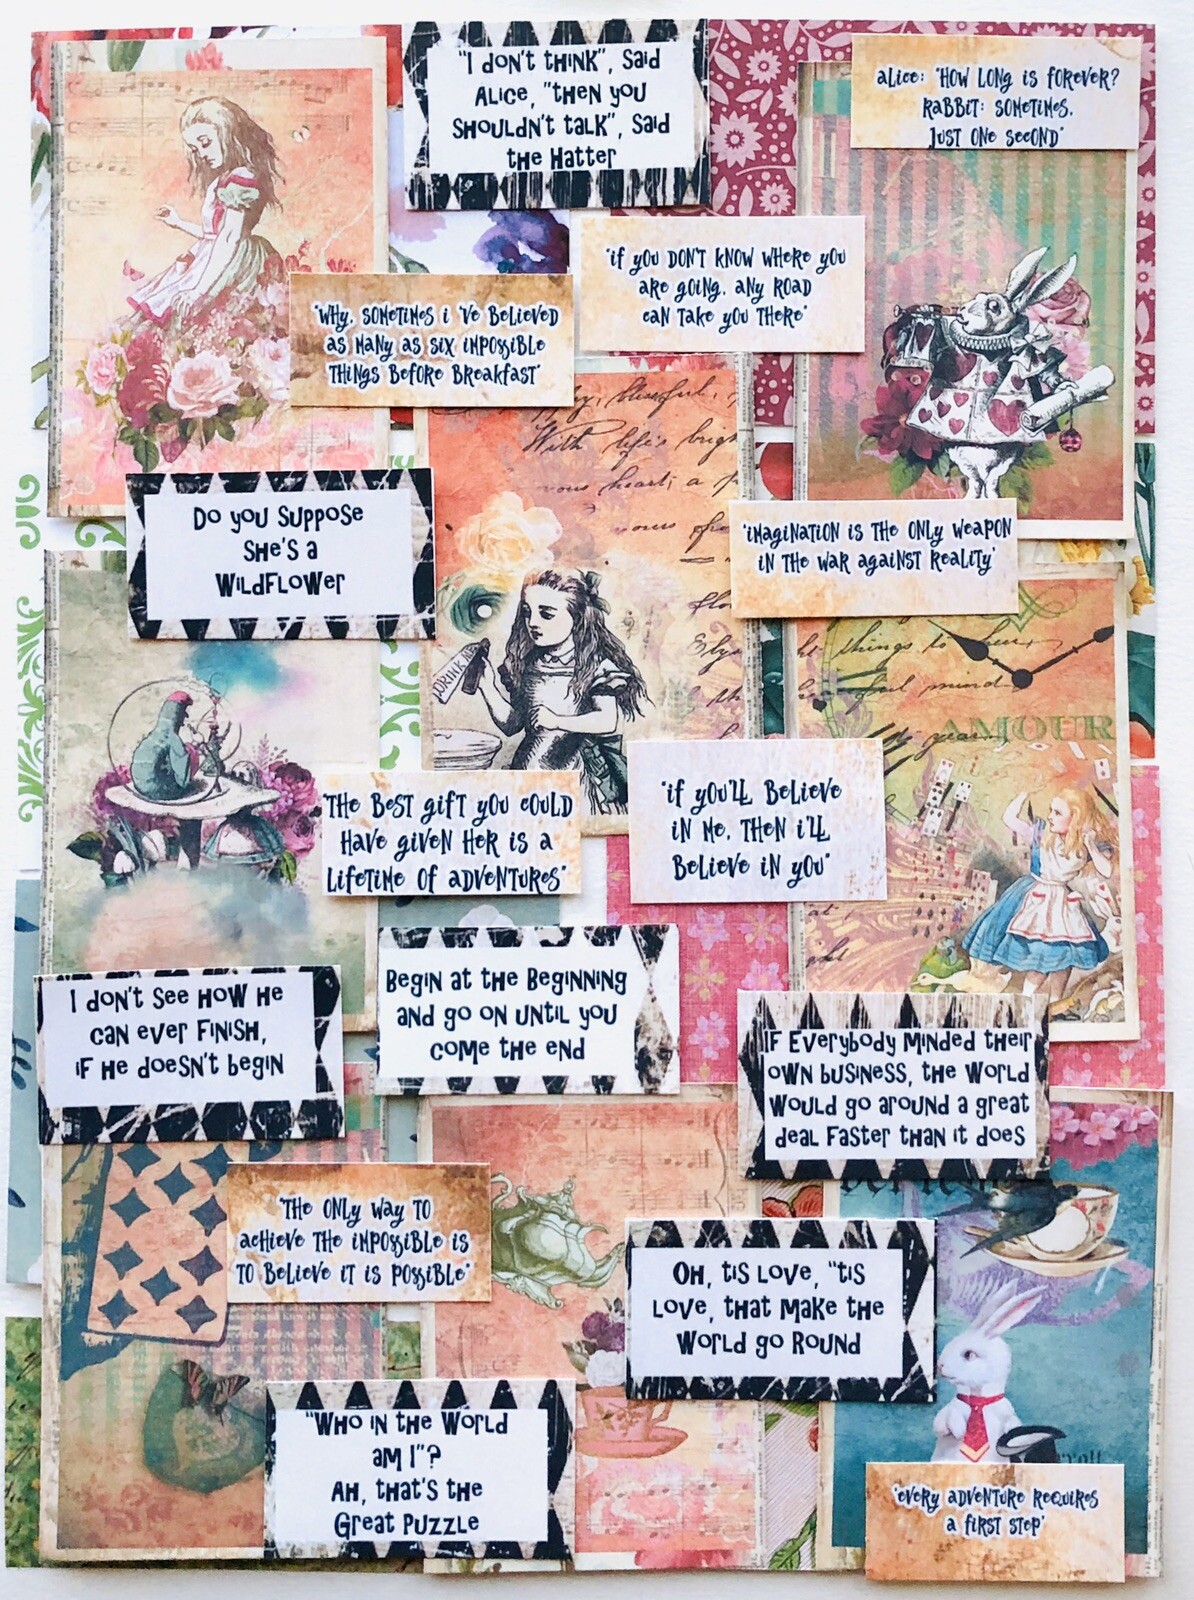 "I don't think", said
Alice, "then you
shouldn't talk", said
the Hatter
alice: "How long is forever?
Rabbit: sometimes,
just one second"
"if you don't know where you
are going, any road
can take you there"
"Why, sometimes i 've believed
as many as six impossible
things before breakfast"
With life's brigh
Do you suppose
she's a
wildflower
"imagination is the only weapon
in the war against reality"
DRINK ME
things to
mind
AMOUR
"The best gift you could
have given her is a
lifetime of adventures"
"if you'll believe
in me, then i'll
believe in you"
I don't see how he
can ever finish,
if he doesn't begin
Begin at the beginning
and go on until you
come the end
If everybody minded their
own business, the world
would go around a great
deal faster than it does
"The only way to
achieve the impossible is
to believe it is possible"
Oh, tis love, "tis
love, that make the
world go round
"Who in the world
am I"?
Ah, that's the
great puzzle
"every adventure requires
a first step"